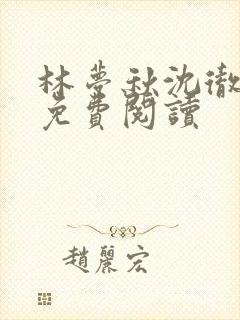 林夢秋沈徹
免費閱讀
趙麗宏